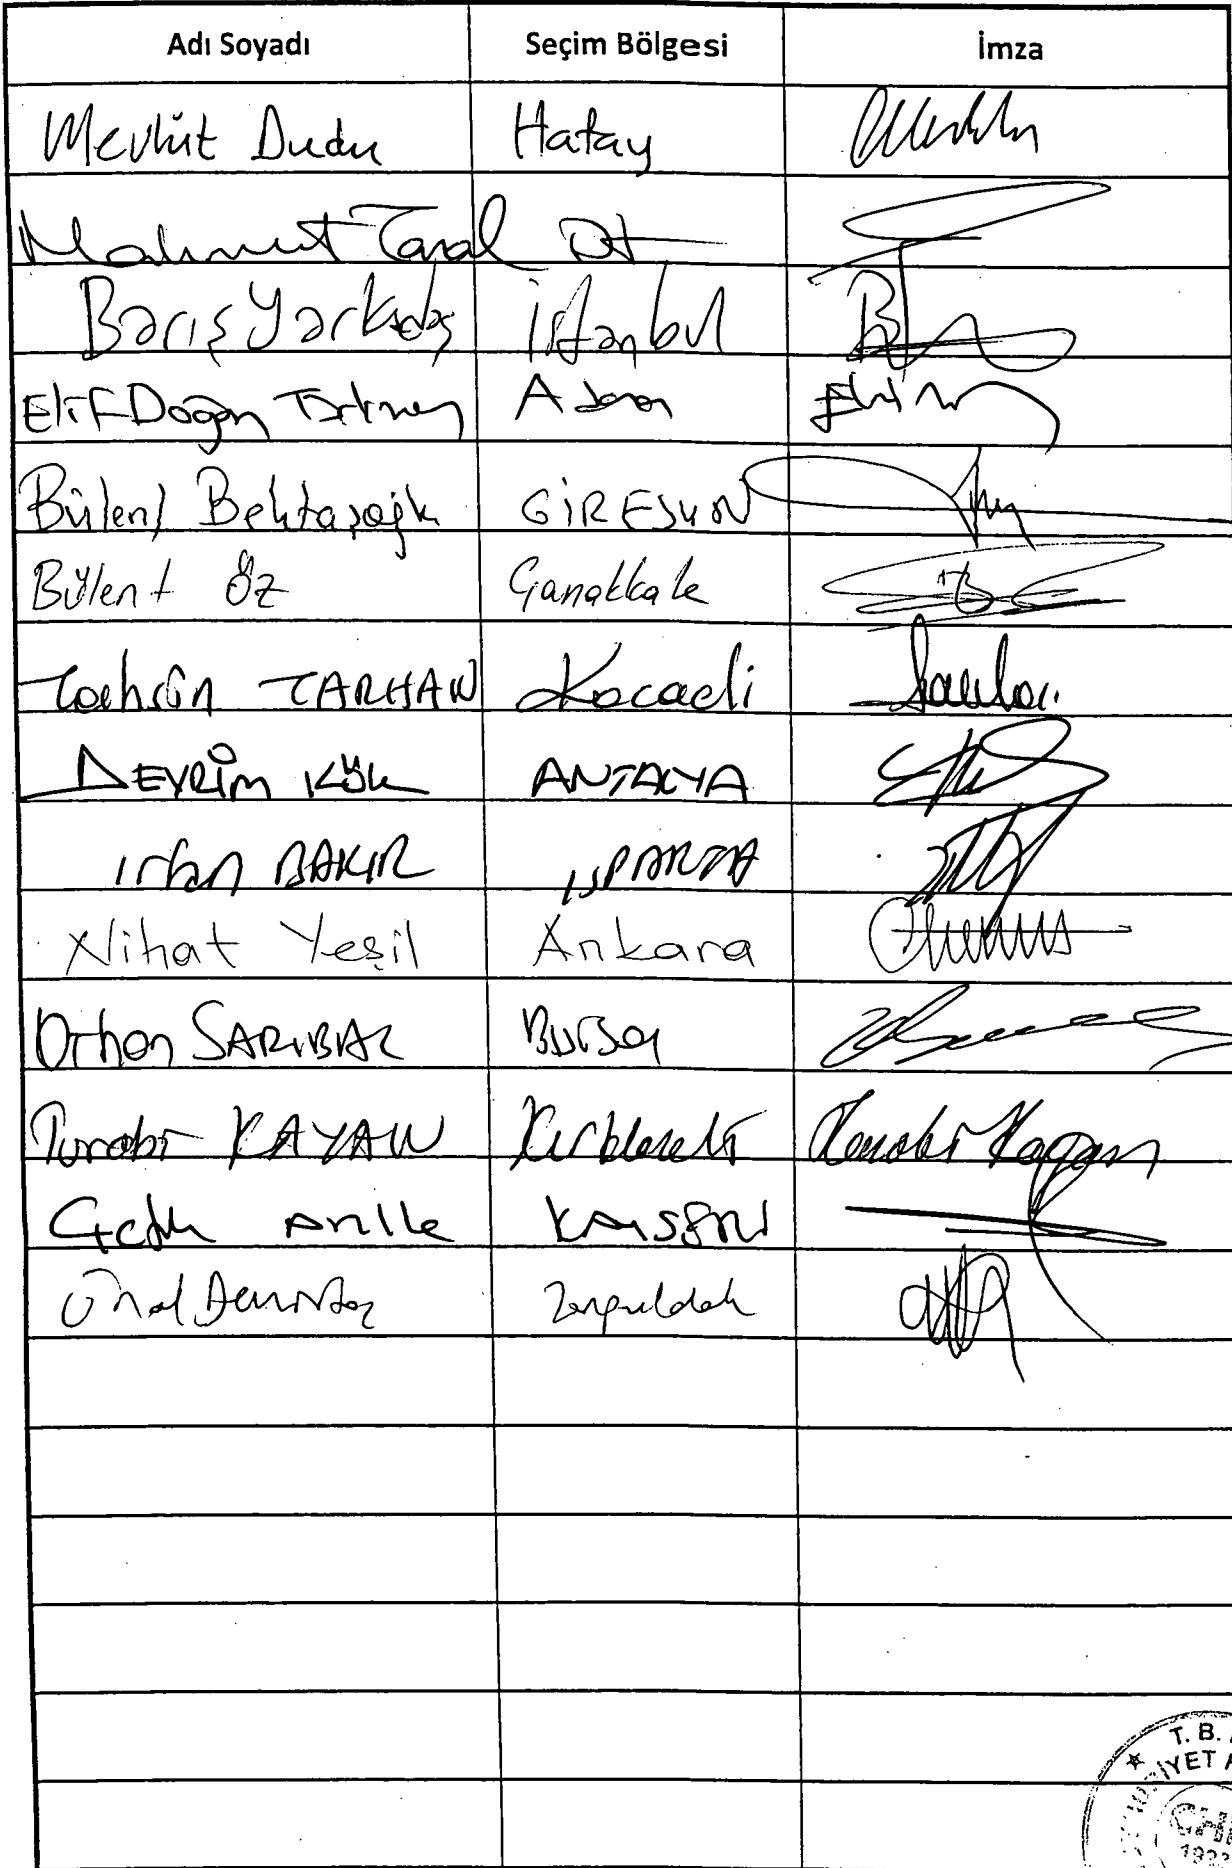 Adı Soyadı Seçim Bölgesi İmza
Mevlüt Dudu Hatay
Mahmut Tanal İst
Barış Yarkadaş İstanbul
Elif Doğan Türkmen Adana
Bülent Bektaşoğlu GİRESUN
Bülent Öz Çanakkale
Tahsin TARHAN Kocaeli
DEVRİM KÖK ANTALYA
irfan BAKIR ISPARTA
Nihat Yeşil Ankara
Orhan SARIBAL Bursa
Turabi KAYAN Kırklareli Turabi Kayan
Çetin Arık KAYSERİ
Ünal Demirtaş Zonguldak
T. B.
CHP